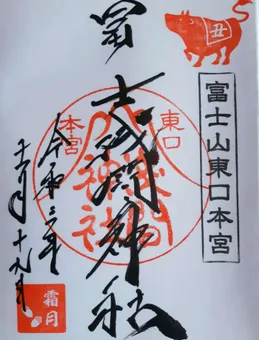 丑
富士山東口本宮
冨士浅間神社
東口
本宮
令和三年
十一月十九日
霜月